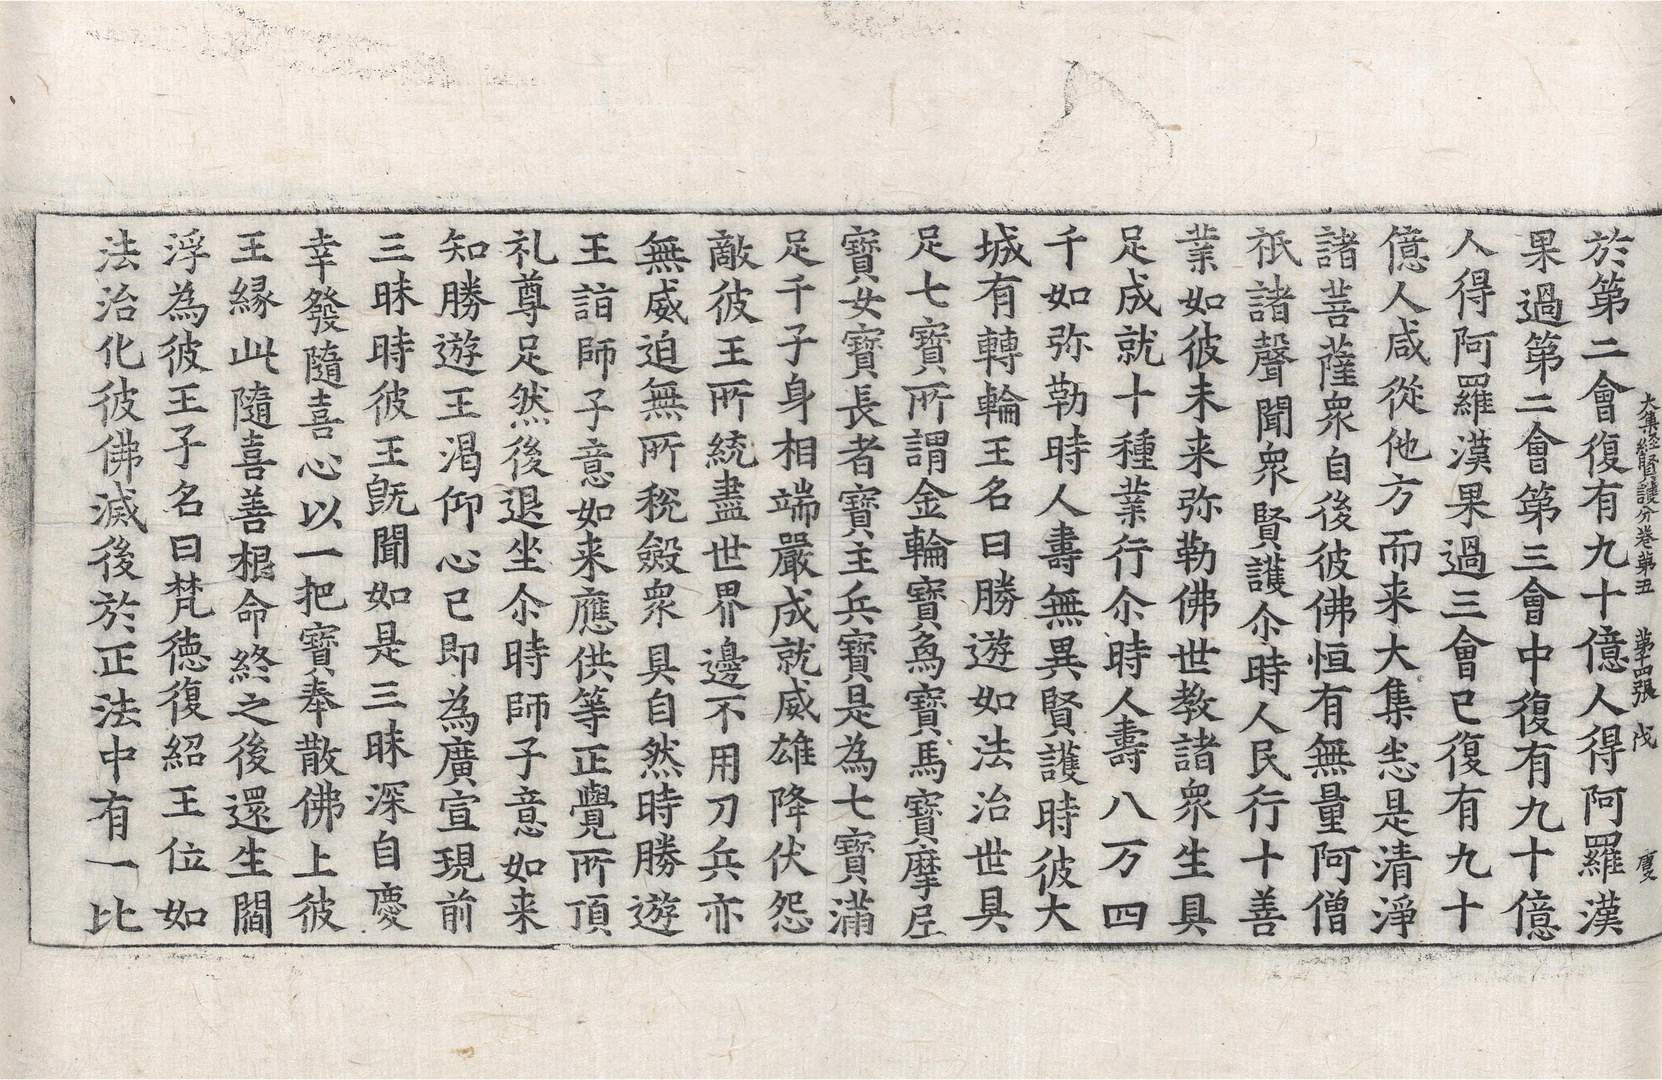 大集經賢護分卷第五 第十四張 伐
於第二會復有九十億人得阿羅漢
果過第二會第三會中復有九十億
人得阿羅漢果過三會已復有九十
億人咸從他方而来大集悉是清淨
諸菩薩衆自後彼佛恒有無量阿僧
祇諸聲聞衆賢護尒時人民行十善
業如彼未来弥勒佛世教諸衆生具
足成就十種業行尒時人壽八万四
千如弥勒時人壽無異賢護時彼大
城有轉輪王名曰勝遊如法治世具
足七寶所謂金輪寶爲寶馬寶摩尼
寶女寶長者寶主兵寶是為七寶滿
足千子身相端嚴成就威雄降伏怨
敵彼王所統盡世界邊不用刀兵亦
無威迫無所稅斂衆具自然時勝遊
王詣師子意如来應供等正覺所頂
礼尊足然後退坐尒時師子意如来
知勝遊王渴仰心已即為廣宣現前
三昧時彼王旣聞如是三昧深自慶
幸發隨喜心以一把寶奉散佛上彼
王縁此隨喜善根命終之後還生閻
浮為彼王子名曰梵徳復紹王位如
法治化彼佛滅後於正法中有一比